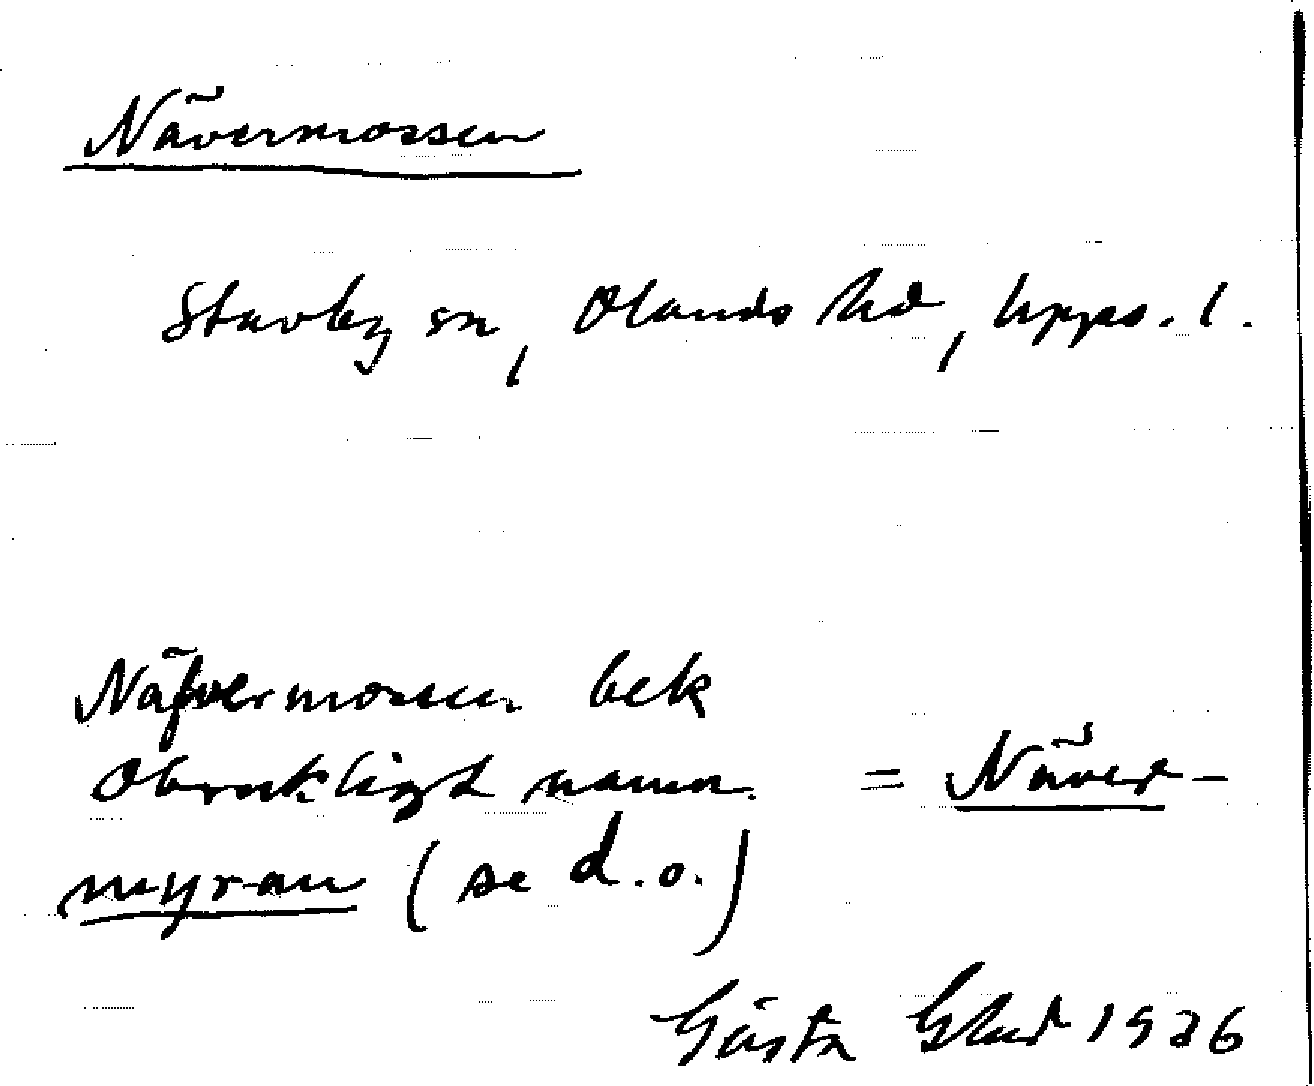 Nävermossen
Stavby sn, Olands hd, Upps. l.
Näfvermossen bek
Obrukligt namn. = Näver-
myran (se d.o.)
Gösta 1936